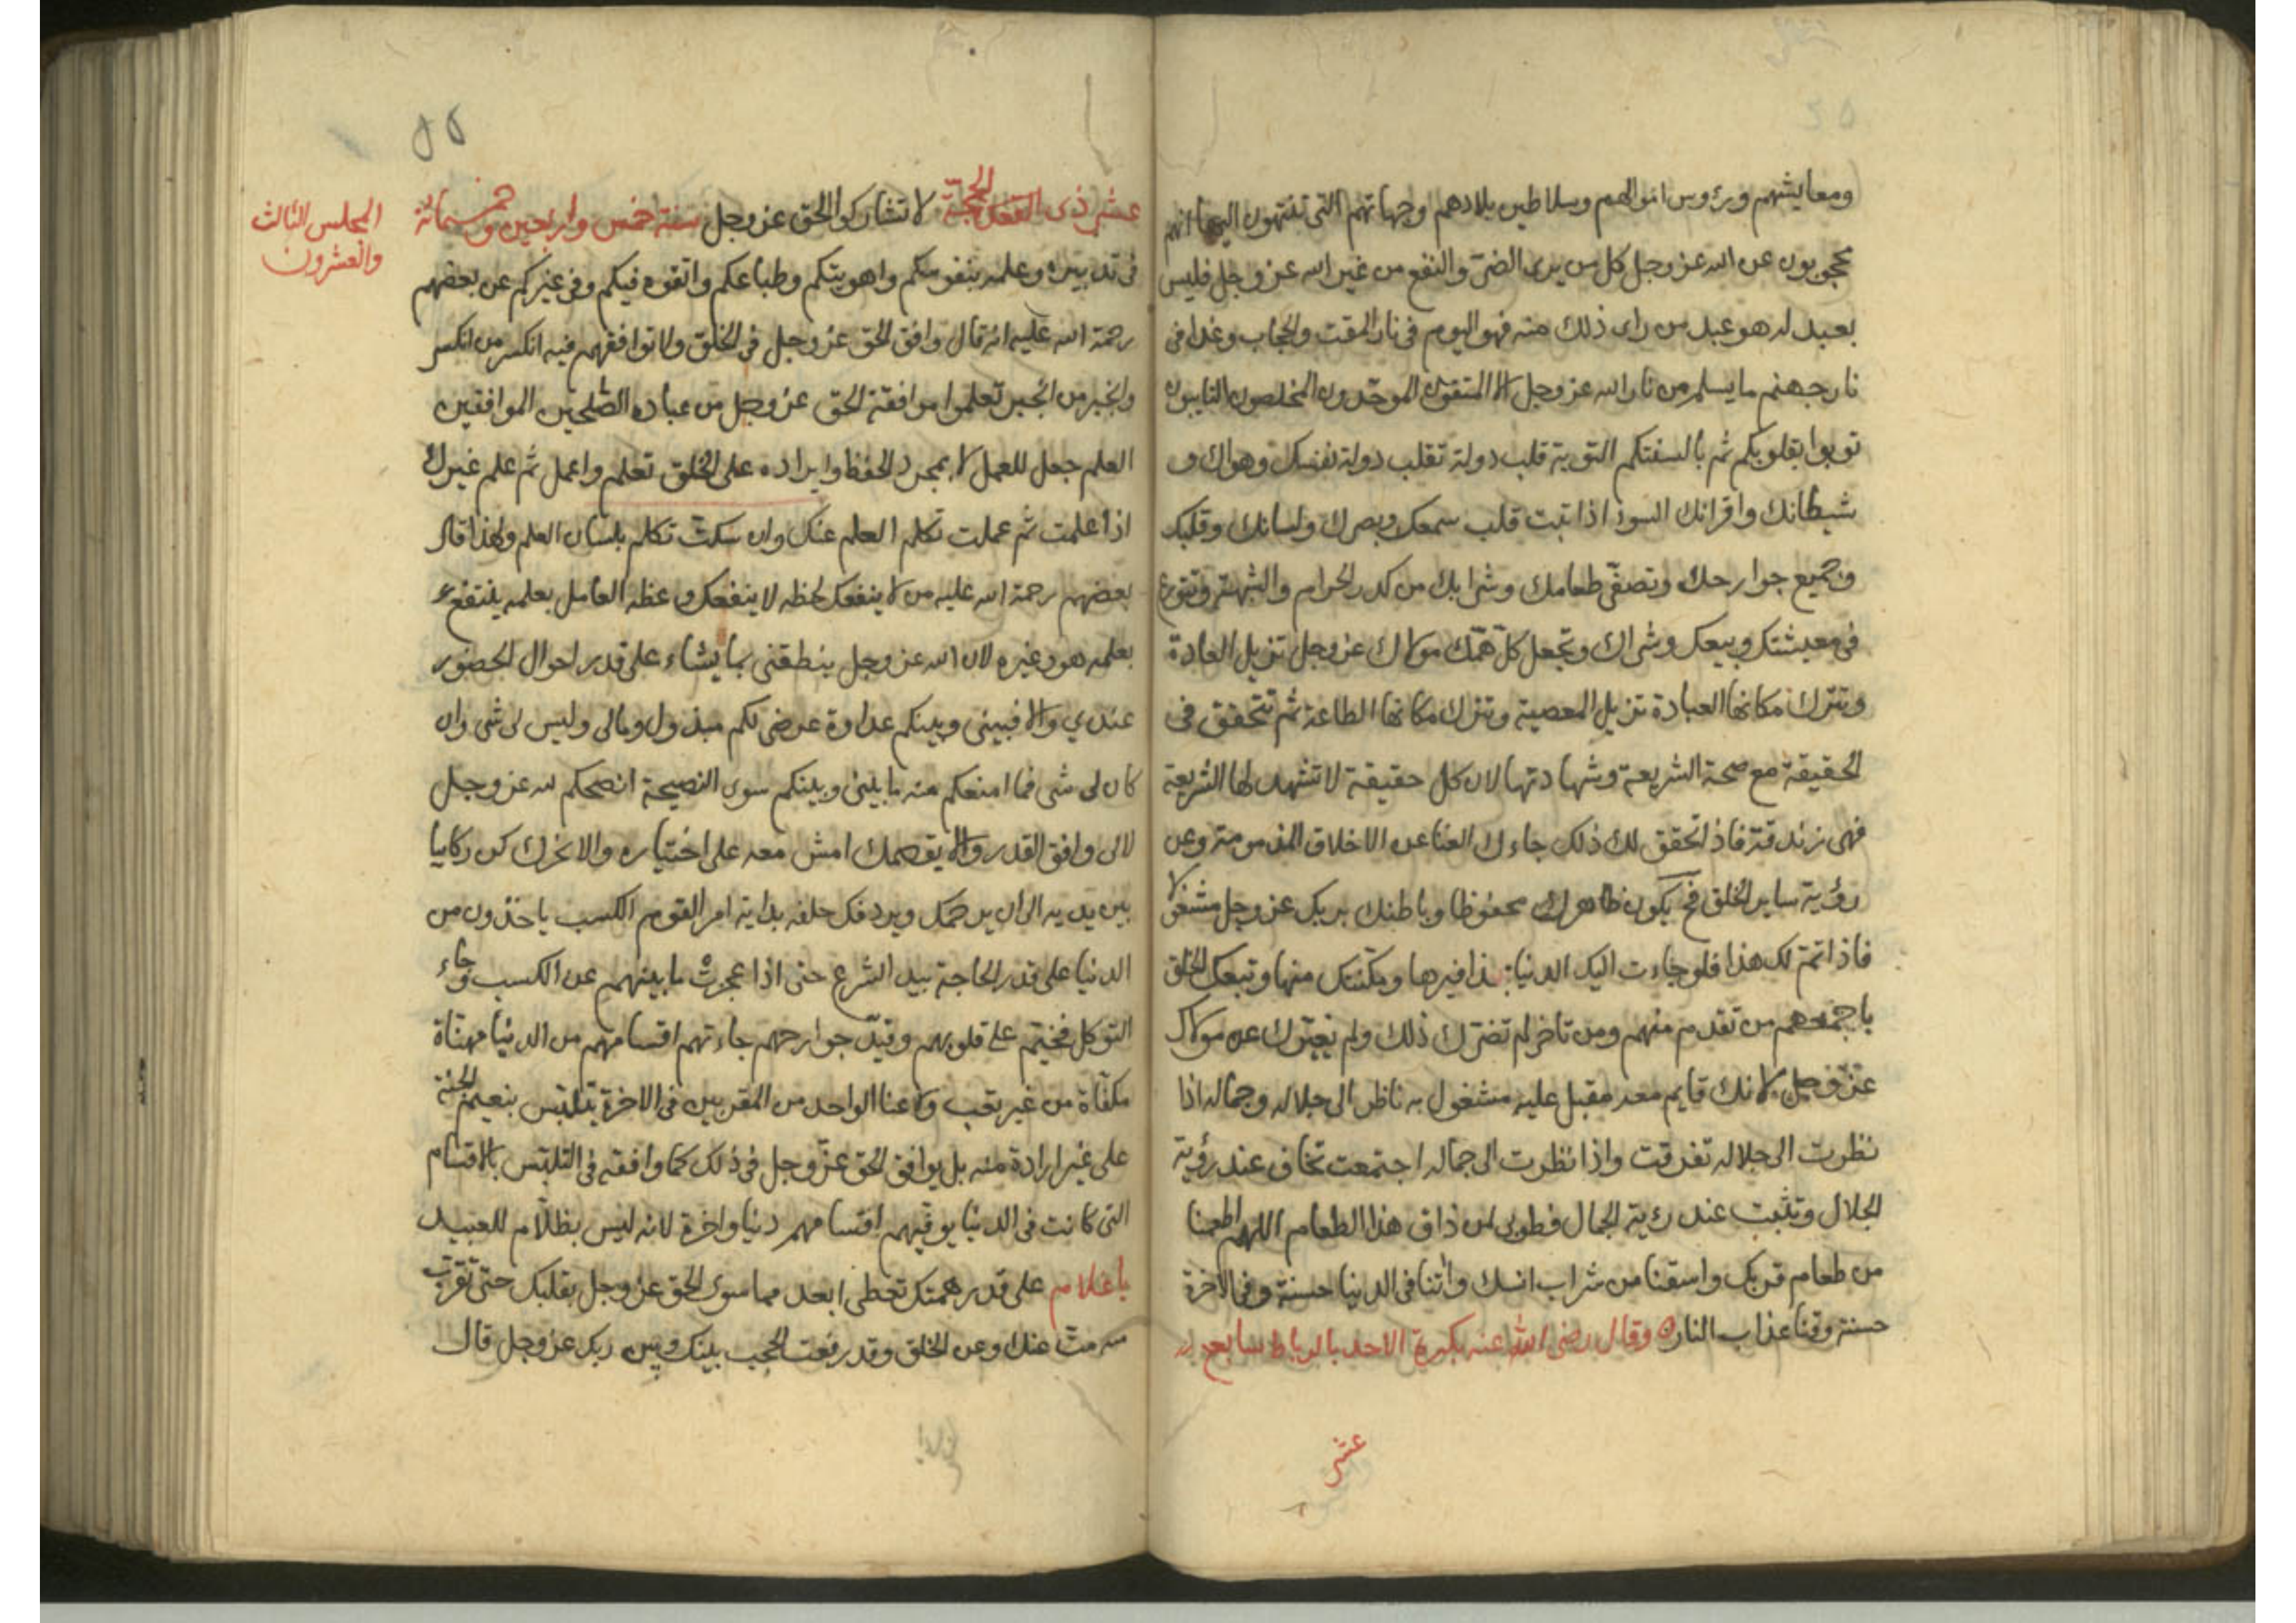 ومعايشهم ورؤوس اموالهم وسلاطين بلادهم وجهاتهم التي ينتهون اليها انهم
محجوبون عن الله عز وجل كل من يرى الضر والنفع من غير الله عز وجل فليس
بعبد له هو عبد من راى ذلك منه فهو اليوم في نار المقت والحجاب وغدا في
نار جهنم ما يسلم من نار الله عز وجل الا المتقون الموحدون المخلصون التايبون
توبوا بقلوبكم ثم بالسنتكم التوبة قلب دولة تقلب دولة نفسك وهواك و
شيطانك واقرانك السوء اذا تبت قلبت سمعك وبصرك ولسانك وقلبك
وجميع جوارحك وتصفى طعامك وشرابك من كدر الحرام والشبهة وتتورع
في معيشتك وبيعك وشراك وتجعل كل همك مولاك عز وجل تزيل العادة
وتترك مكانها العبادة تزيل المعصية وتترك مكانها الطاعة ثم تتحقق في
الحقيقة مع صحة الشريعة وشهادتها لان كل حقيقة لا تشهد لها الشريعة
فهي زندقة فاذا تحقق لك ذلك جاءك الفنا عن الاخلاق المذمومة وعن
رؤية ساير الخلق فح يكون ظاهرك محفوظا وباطنك بربك عز وجل مشغولا
فاذا تم لك هذا فلو جاءت اليك الدنيا بحذافيرها ومكنتك منها وتبعك الخلق
باجمعهم من تقدم منهم ومن تاخر لم تضرك ذلك ولم يغيرك عن مولاك
عز وجل لانك قايم معه مقبل عليه مشغول به ناظر الى جلاله وجماله اذا
نظرت الى جلاله تفرقت واذا نظرت الى جماله اجتمعت تخاف عند رؤية
الجلال وتثبت عند رؤية الجمال فطوبى لمن ذاق هذا الطعام اللهم اطعمنا
من طعام قربك واسقنا من شراب انسك واتنا في الدنيا حسنة وفي الاخرة
حسنة وقنا عذاب النار وقال رضى الله عنه بكرة الاحد بالرباط سابع
عشر
٥٥
المجلس الثالث
والعشرون
عشر ذى القعدة الحجة لا تشاركوا الحق عز وجل سنة خمس واربعين وخمسمائة
في تدبيره وعلمه بنفوسكم واهويتكم وطباعكم واتقوه فيكم وفي غيركم عن بعضهم
رحمة الله عليه انه قال وافق الحق عز وجل في الخلق ولا توافقهم فيه انكسر من انكسر
وانجبر من انجبر تعلموا موافقة الحق عز وجل من عباده الصلحين الموافقين
العلم جعل للعمل لا بمجرد الحفظ وايراده على الخلق تعلم واعمل ثم علم غيرك
اذا علمت ثم عملت تكلم العلم عنك وان سكت تكلم بلسان العلم ولهذا قال
بعضهم رحمة الله عليه من لا ينفعك لحظه لا ينفعك وعظه العامل بعلمه ينتفع
بعلمه هو وغيره لان الله عز وجل ينطقني بما يشاء على قدر احوال الحضور
عندي والا فبيني وبينكم عداوة عرضي لكم مبذول ومالي وليس لى شى وان
كان لى شى فما امنعكم منه ما بيني وبينكم سوى النصيحة انصحكم لله عز وجل
لالى وافق القدر والا يقصمك امش معه على اختياره والا نحرك كن ركابيا
بين يديه الى ان يرحمك ويردفك خلفه بداية امر القوم الكسب ياخذون من
الدنيا على قدر الحاجة بيد الشرع حتى اذا عجزت مابينهم عن الكسب وجاء
التوكل فختم على قلوبهم وقيد جوارحهم جاءتهم اقسامهم من الدنيا مهناة
مكفاة من غير تعب ولا عنا الواحد من المقربين في الاخرة يتلبس بنعيم الجنة
على غير ارادة منه بل يوافق الحق عز وجل في ذلك كما وافقه في التلبس بالاقسام
التي كانت في الدنيا يوفيهم اقسامهم دنيا واخرة لانه ليس بظلام للعبيد
يا غلام على قدر همتك تعطى ابعد مما سوى الحق عز وجل بقلبك حتى تقرب
منه مت عنك وعن الخلق وقد رفعت الحجب بينك وبين ربك عز وجل قال